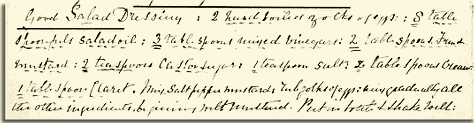 Good Salad Dressing: 2 hard boiled yolks of eggs: 8 table
spoonfuls salad oil: 3 table spoons mixed vinegars: 2 table spoons French
mustard: 2 teaspoons Castor sugar: 1 teaspoon salt: 2 table spoons Cream:
1 table spoon Claret. Mix salt pepper mustard & rub yolks of eggs: mix gradually all
the other ingredients beginning with mustard. Put in bottle & shake well: